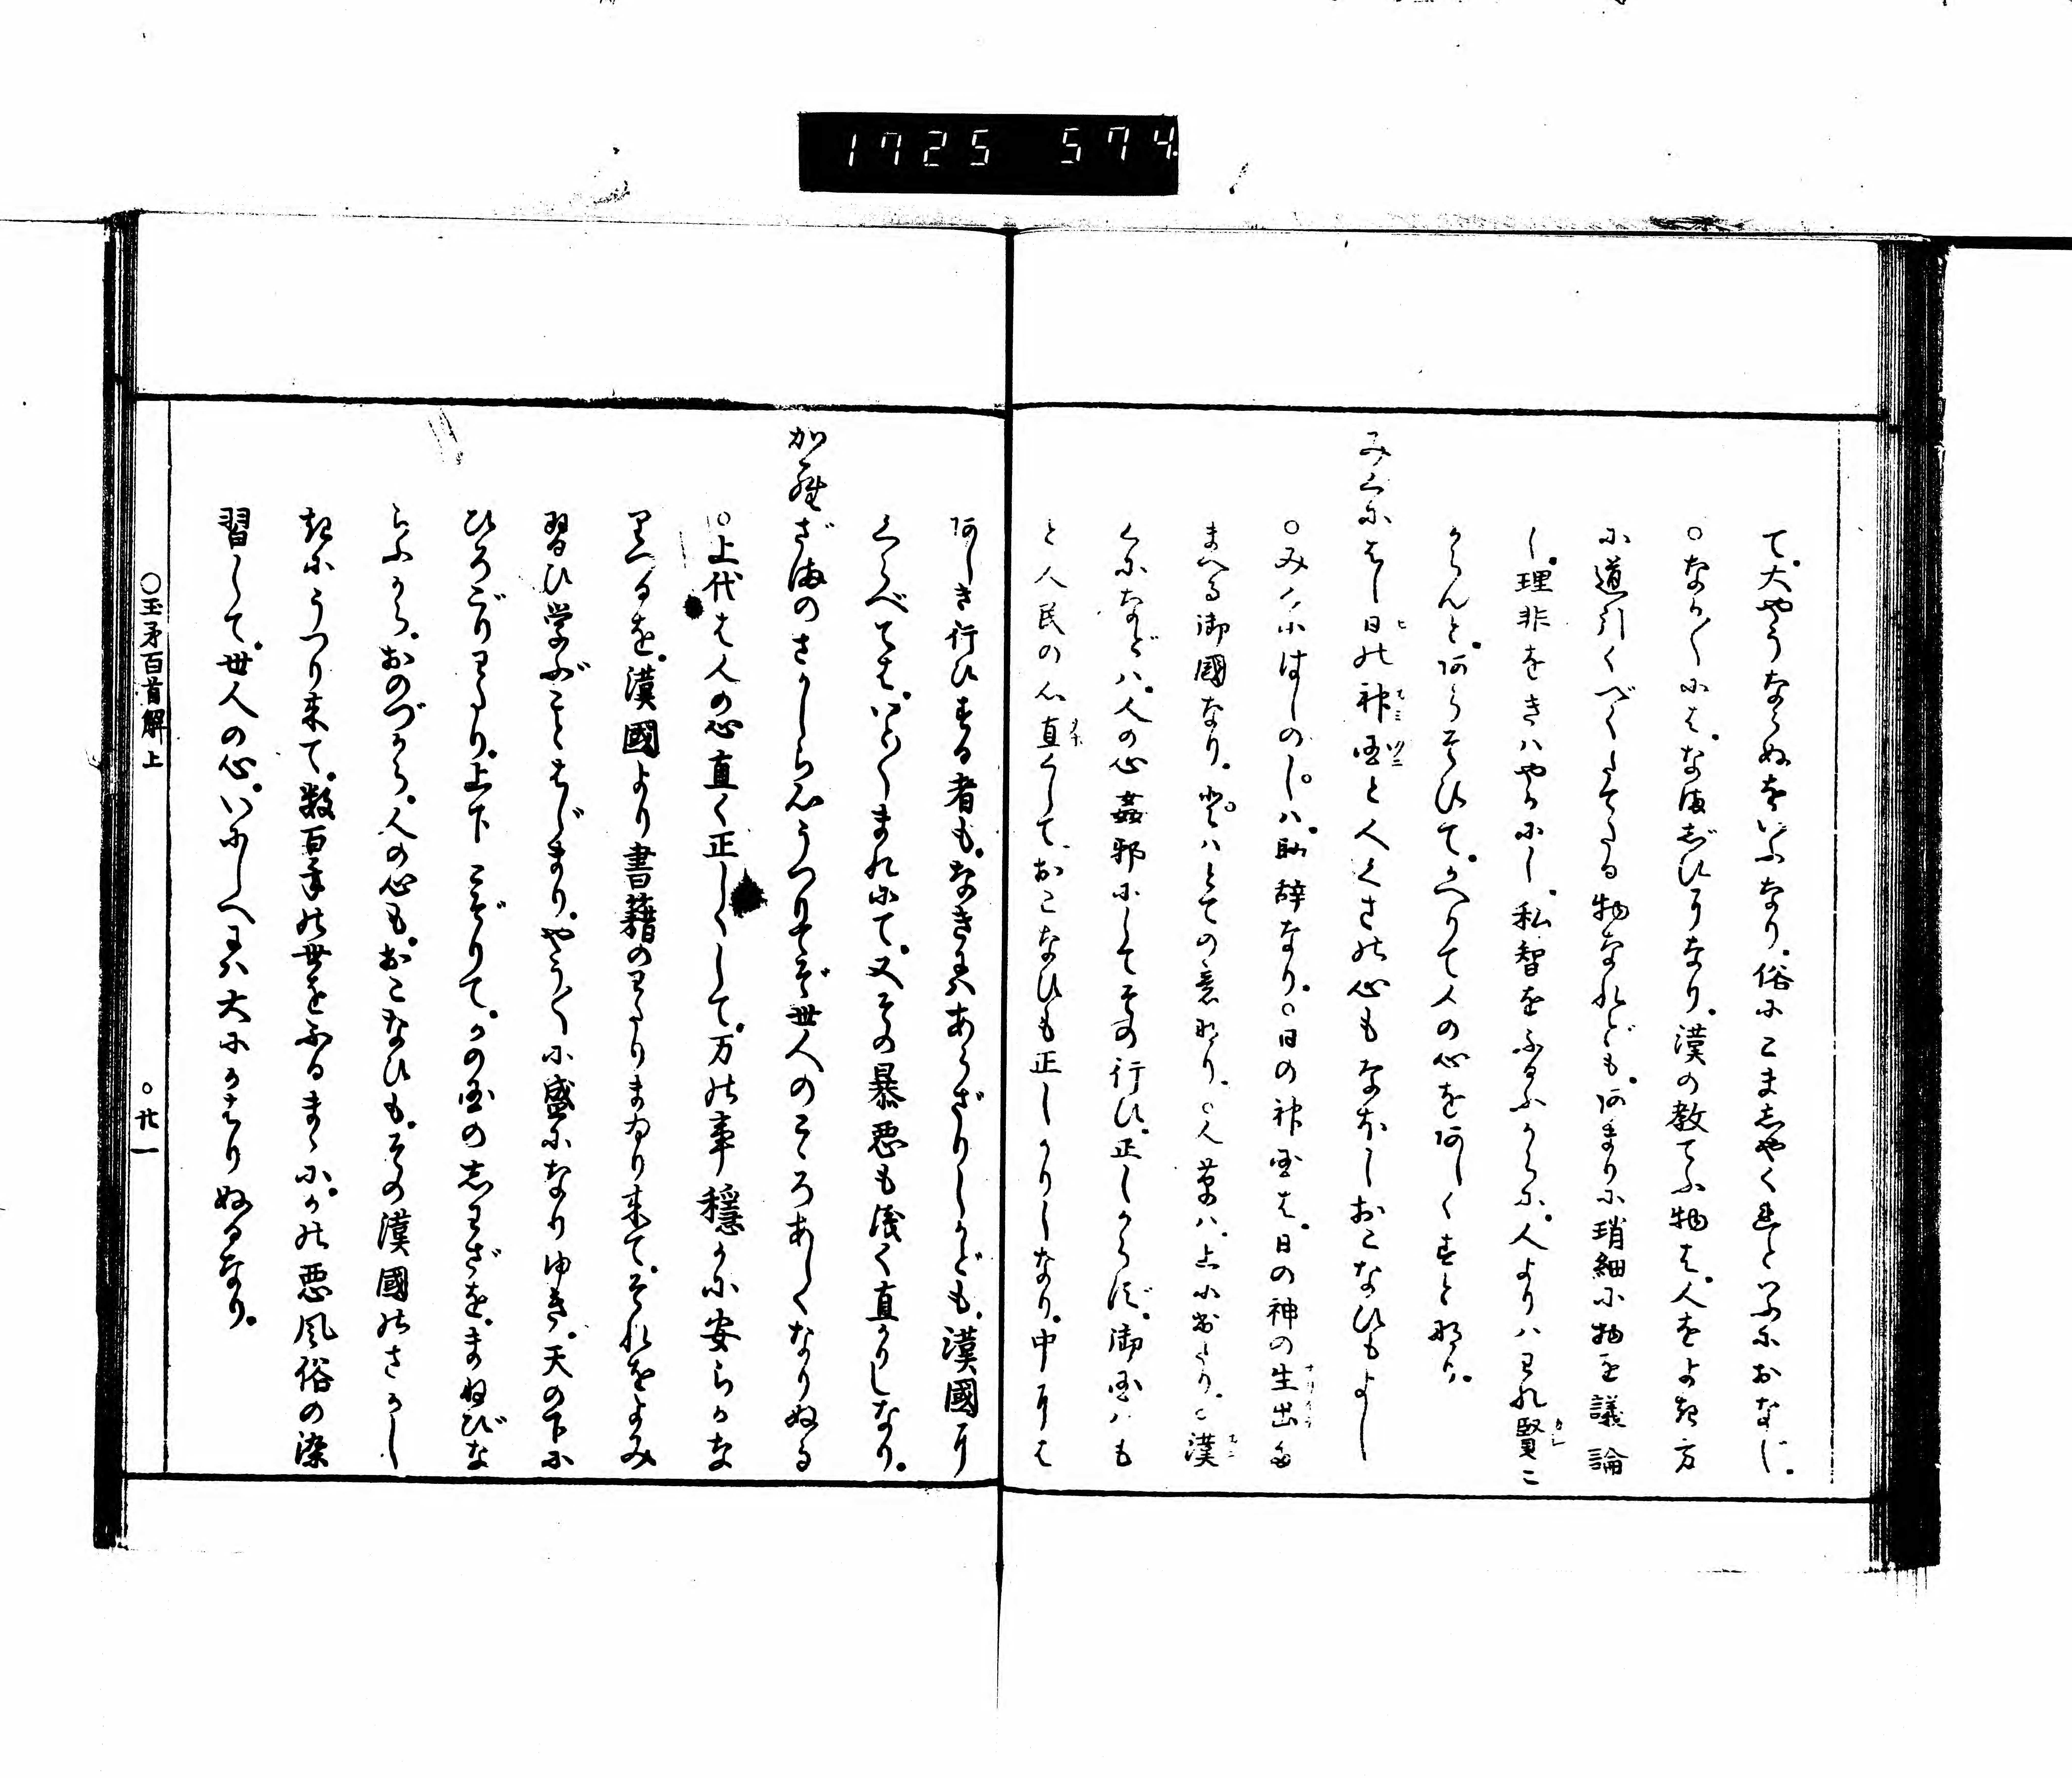 1725 574
て。大やうならぬをいふなり。俗にこましやくれといふにおなじ。
○なか〳〵には。なまじひになり。漢の教てふ物は。人をよき方
に道引くべくたてたる物なれども。あまりに瑣細に物を議論
し。理非をきはやかにし。私智をふるふからに。人よりはわれ賢こ
からんと。あらそひて。かへりて人の心をあしくすと也。
みくにはし日の神国と人くさの心もなほしおこなひもよし
○みくにはしのし゜は。助辞なり。○日の神国は。日の神の生出給
まへる御國なり。とてはとての意なり。○人草は。上に出たり。○漢
くになどは。人の心姦邪にしてその行ひ。正しからず。御国はも
と人民の心直くして。おこなひも正しかりしなり。中には
あしき行ひする者も。なきにはあらざりしかども。漢國に
くらべては。いと〳〵まれにて。又その暴悪も浅く直かりしなり。
からざまのさかしら心うつりてぞ世人のこころあしくなりぬる
○上代は人の心直く正しくして。万の事穏かに安らかな
りつるを。漢國より書籍のわたりまゐり来て。それをよみ
習ひ学ぶことはじまり。やう〳〵に盛になりゆき。天の下に
ひろごりわたり。上下こぞりて。かの国の志わざを。まねびな
らふから。おのづから。人の心も。おこなひも。その漢國のさかし
きにうつり来て。数百年の世をふるまゝに。かの悪風俗の染
習して。世人の心。いにしへとは大にかはりぬるなり。
○玉矛百首解上
○廿一